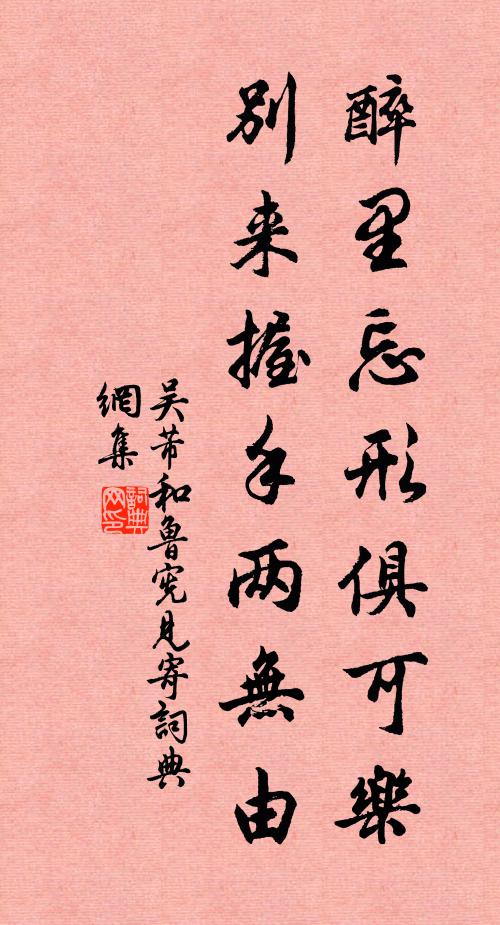 醉里忘形俱可樂
別来握手两無由
吴芾和魯宪見寄詞典
網集
詞典
网印